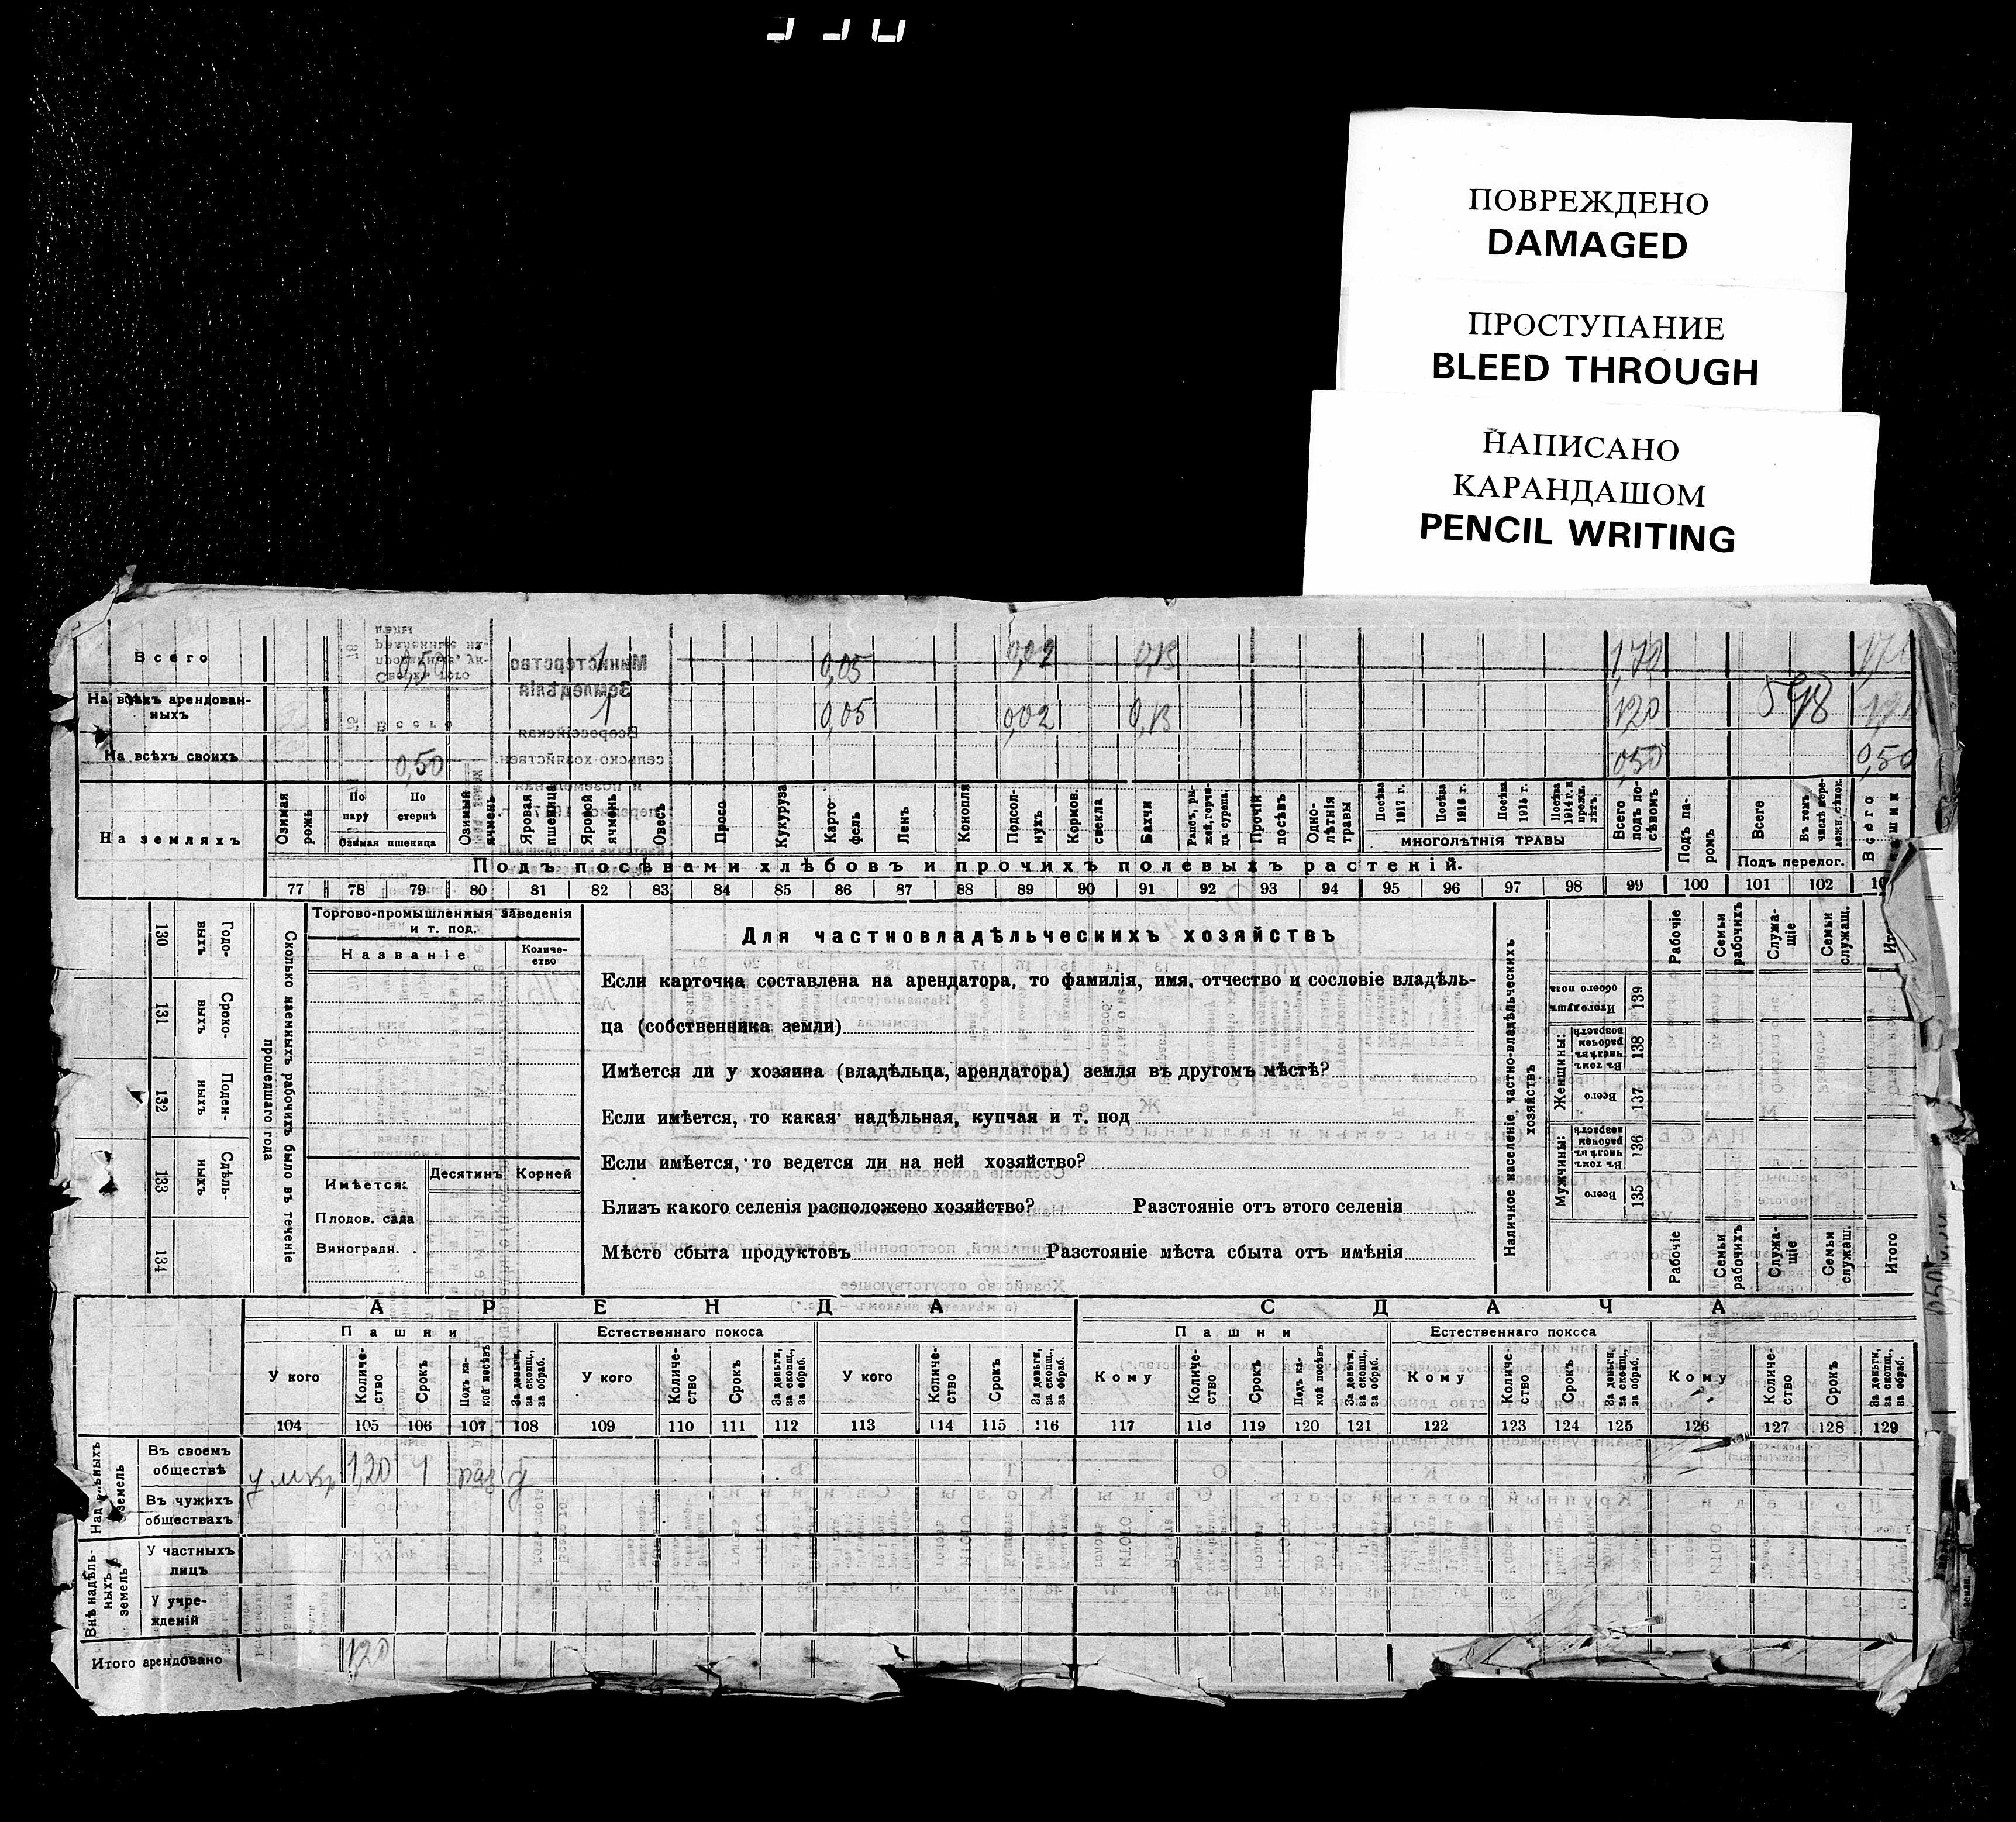 ПОВРЕЖДЕНО
DAMAGED
ПРОСТУПАНИЕ
BLEED THROUGH
НАПИСАНО
КАРАНДАШОМ
PENCIL WRITING
Всего 0,50 1 0,05 0,02 0,13 1,70
На всѣхъ арендованныхъ 1 0,05 0,02 0,13 1,20
На всѣхъ своихъ 0,50 0,50 0,50
На земляхъ
Озимая рожь
По пару
По стернѣ
Озимая пшеница
Озимый ячмень
Яровая пшеница
Яровой ячмень
Овесъ
Просо
Кукуруза
Картофель
Ленъ
Конопля
Подсолнухъ
Кормов. свекла
Бахчи
Рапсъ, рыжей, горчица сурепа.
Прочій посѣвъ
Однолѣтнія травы
Посѣва 1917 г.
Посѣва 1916 г.
Посѣва 1915 г.
Посѣва 1914 г. и прежн. лѣтъ
МНОГОЛѢТНІЯ ТРАВЫ
Всего подъ посѣвомъ
Подъ паромъ
Всего
Въ томъ числѣ перелож. сѣнок.
Подъ перелог.
Всего пашни
Подъ посѣвами хлѣбовъ и прочихъ полевыхъ растеній.
77 78 79 80 81 82 83 84 85 86 87 88 89 90 91 92 93 94 95 96 97 98 99 100 101 102
130 Годовыхъ
131 Сроковыхъ
132 Поденныхъ
133 Сдѣльныхъ
134
Сколько наемныхъ рабочихъ было въ теченіе прошедшаго года
Торгово-промышленныя заведенія и т. под.
Названіе
Количество
Имѣется:
Десятинъ
Корней
Плодов. сада
Виноградн.
Для частновладѣльческихъ хозяйствъ
Если карточка составлена на арендатора, то фамилія, имя, отчество и сословіе владѣль-
ца (собственника земли)
Имѣется ли у хозяина (владѣльца, арендатора) земля въ другомъ мѣстѣ?
Если имѣется, то какая надѣльная, купчая и т. под
Если имѣется, то ведется ли на ней хозяйство?
Близъ какого селенія расположено хозяйство? Разстояніе отъ этого селенія
Мѣсто сбыта продуктовъ Разстояніе мѣста сбыта отъ имѣнія
Наличное населеніе частно-владѣльческихъ хозяйствъ
Рабочіе
Семьи рабочихъ
Служащіе
Семьи служащ.
Итого душъ обоего пола 139
Женщины:
Въ томъ числѣ въ рабочемъ возрастѣ 138
Всего 137
Мужчины:
Въ томъ числѣ въ рабочемъ возрастѣ 136
Всего 135
Рабочіе
Семьи рабочихъ
Служащіе
Семьи служащ.
Итого
АРЕНДА
СДАЧА
Пашни
Естественнаго покоса
Пашни
Естественнаго покоса
У кого
Количество
Срокъ
Подъ какой посѣвъ
За деньги, за скопщ., за обраб.
У кого
Количество
Срокъ
За деньги, за скопщ., за обраб.
У кого
Количество
Срокъ
За деньги, за скопщ., за обраб.
Кому
Количество
Срокъ
Подъ какой посѣвъ
За деньги, за скопщ., за обраб.
Кому
Количество
Срокъ
За деньги, за скопщ., за обраб.
Кому
Количество
Срокъ
За деньги, за скопщ., за обраб.
104 105 106 107 108 109 110 111 112 113 114 115 116 117 118 119 120 121 122 123 124 125 126 127 128 129
Надѣльныхъ земель
Въ своемъ обществѣ 1,20 1
Въ чужихъ обществахъ
Внѣ надѣльныхъ земель
У частныхъ лицъ
У учрежденій
Итого арендовано 1,20